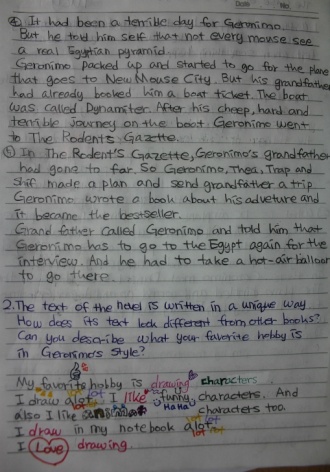 Date No.
④ It had been a terrible day for Geronimo.
But he told him self that not every mouse see
a real Egyptian pyramid.
Geronimo packed up and started to go for the plane
that goes to New Mouse City. But his grandfather
had already booked him a boat ticket. The boat
was called Dynamster. After his cheep, hard and
terrible journey on the boot Geronimo went
to The Rodents Gazette.
⑤ In The Rodent's Gazette, Geronimo's grandfather
had gone to far. So Geronimo, Thea, Trap and
stif made a plan and send grandfather a trip
Geronimo wrote a book about his adveture and
it became the bestseller.
Grand father called Geronimo and told him that
Geronimo has to go to the Egypt again for the
interview. And he had to take a hot-air balloon
to go there.
2. The text of the novel is written in a unique way
How does its text look different from other books?
Can you describe what your favorite hobby is
in Geronimo's style?
My favorite hobby is drawing characters.
I draw alot. I like funny characters. And
also I like characters too.
HaHa
I draw in my notebook alot.
lot lot
I Love drawing.